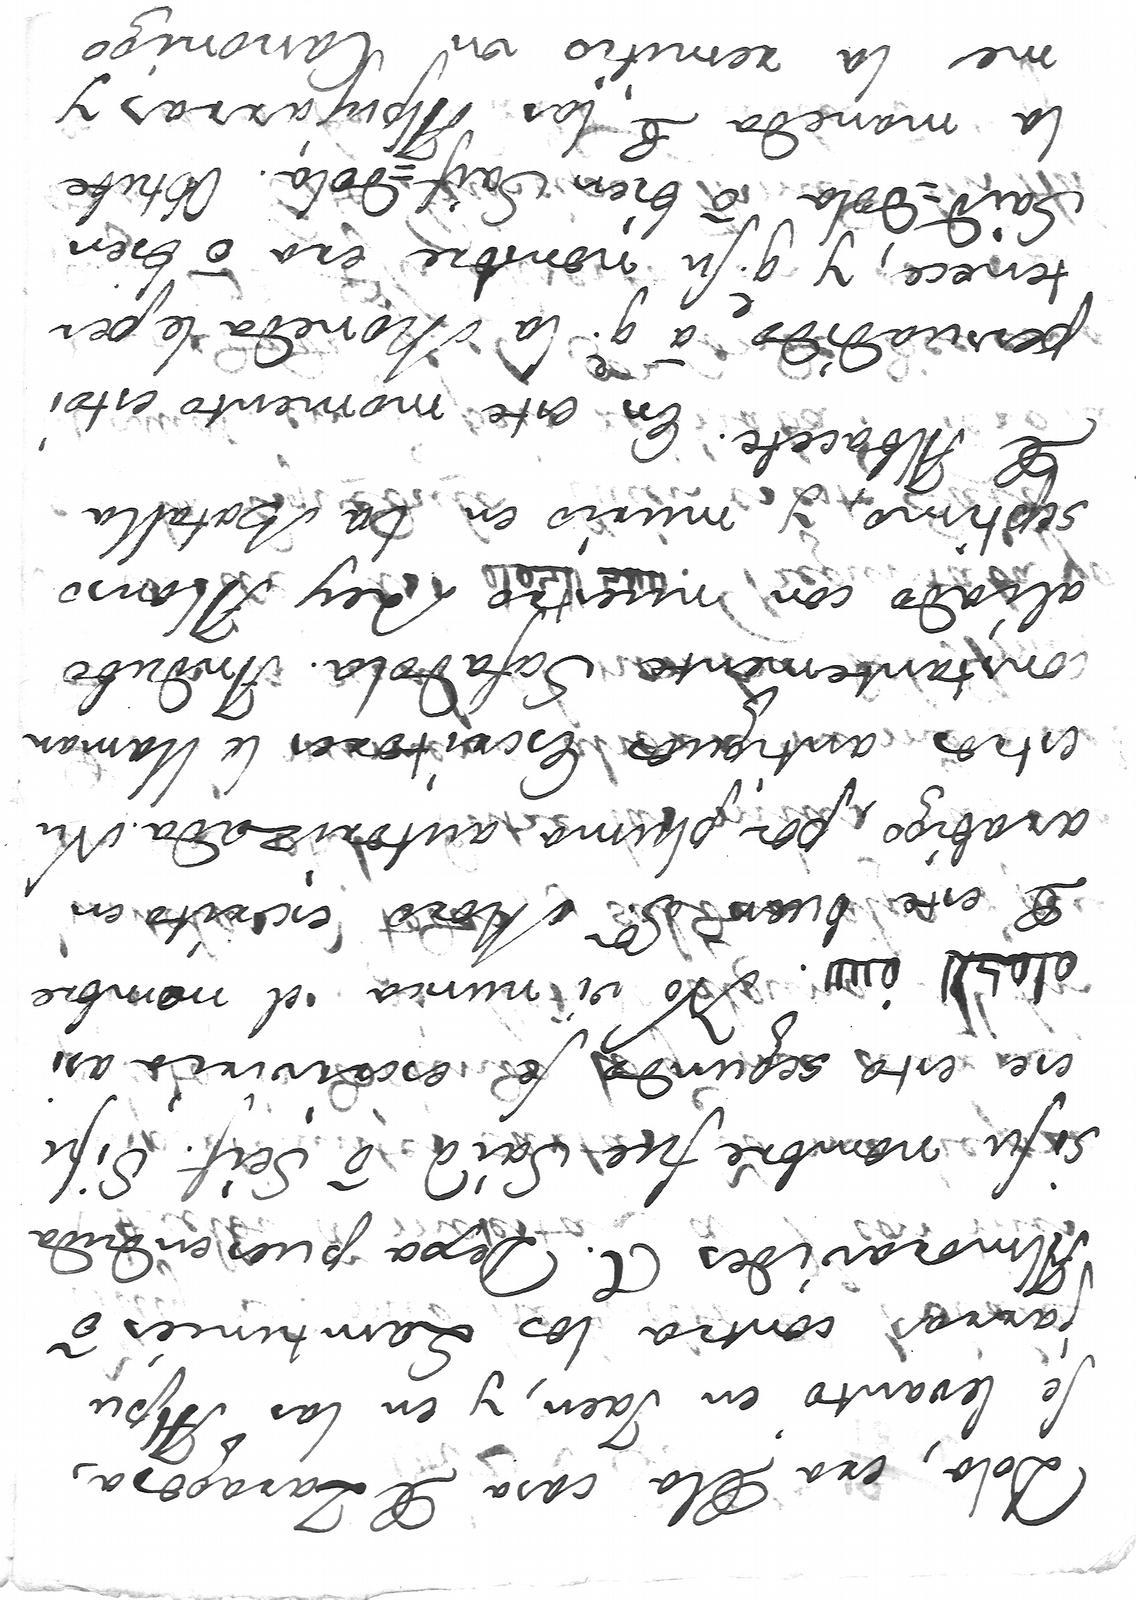 Dola, era de la casa de Zaragoza,
se levantó en Jaen, y en las Alpu
jarras contra los Lamtunies ō
Almoravides &. Dexa pues en duda
si su nombre fue Said ō Seif. Si fu
ese este segundo, se escriviria asi
. Yo vi nunca el nombre
de este buen S.or Moro escrito en
arabigo, por pluma autorizada. Nu
estros antiguos Escritores le llaman
constantemente Safadola. Anduvo
aliado con nuestro Rey Alonso
septimo, y murio en la Batalla
de Albacete. En este momento estoi
persuadido ā q.e la Moneda le per
tenece, y q.e su nombre era ō bien
Said=Dola ō bien Saif=Dola. Obtube
la moneda de las Alpujarras y
me la remitio un Canonigo